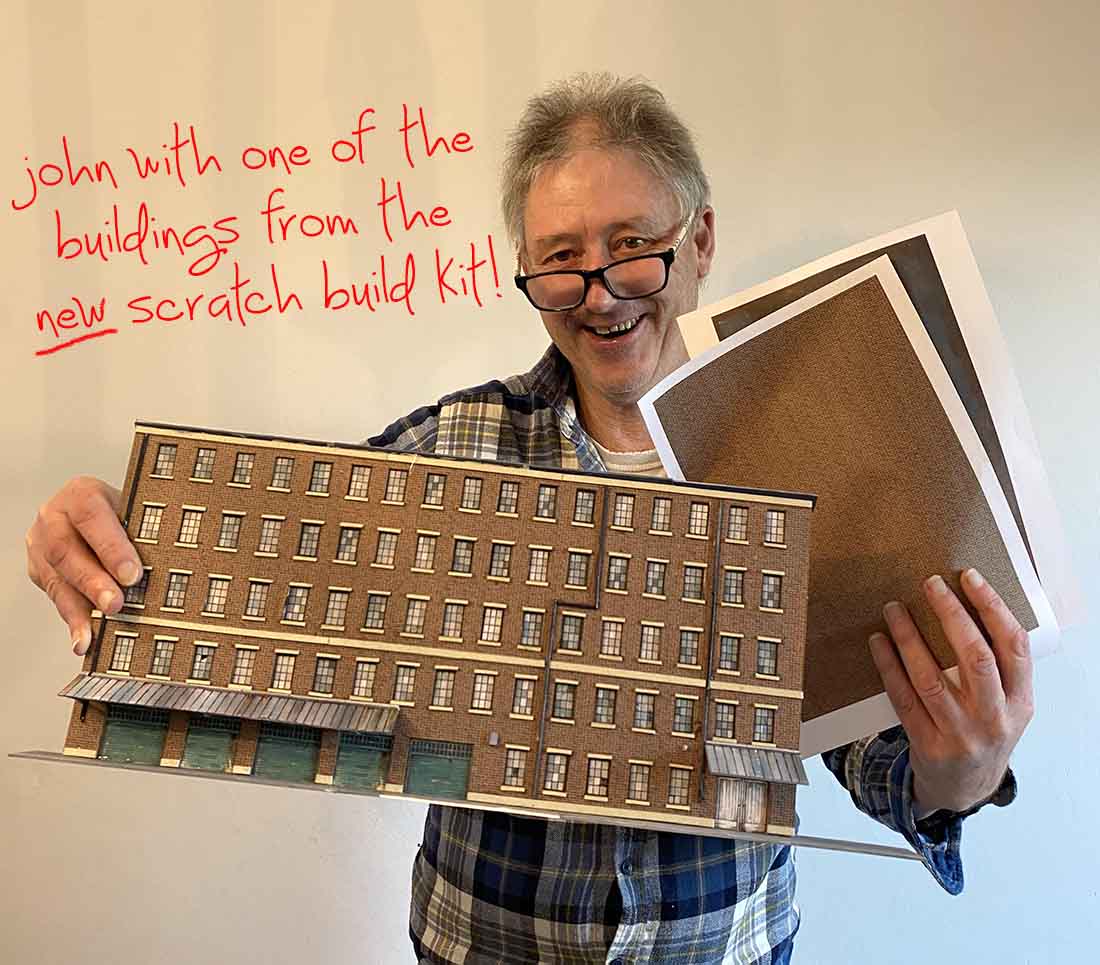 john with one of the
buildings from the
new scratch build kit!